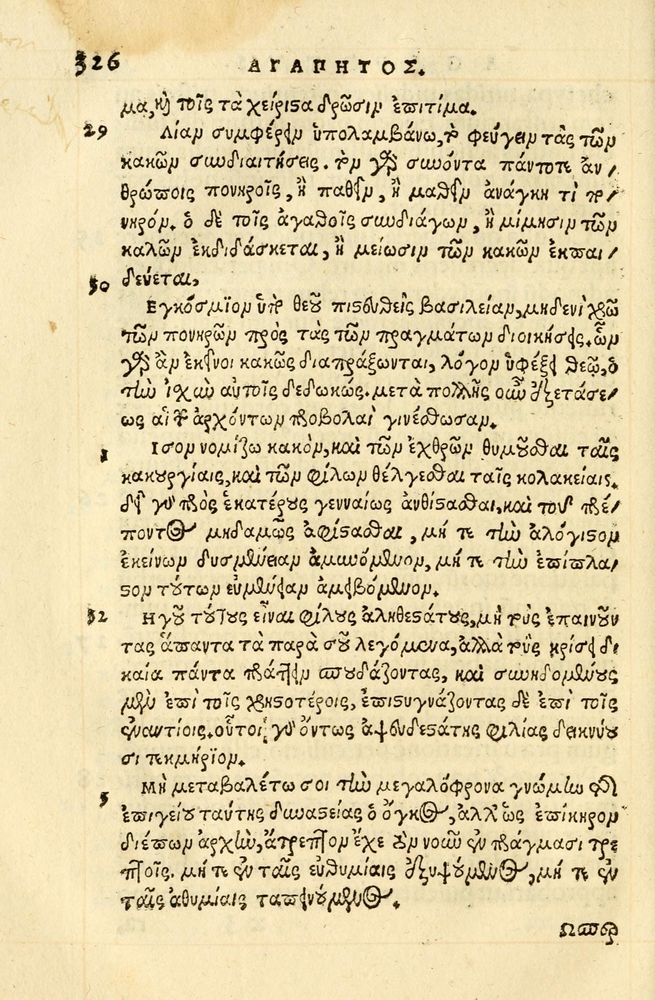 326 ΑΓΑΠΗΤΟΣ.
μα, καὶ τοῖς τὰ χείριστα δρῶσιν ἐπιτίμα.
29 Λίαν συμφέρειν ὑπολαμβάνω, τὸ φεύγειν τὰς τῶν
κακῶν συνδιαιτήσεις. τὸν γὰρ συνόντα πάντοτε ἀν/
θρώποις πονηροῖς, ἢ παθεῖν, ἢ μαθεῖν ἀνάγκη τὶ πο/
νηρόν. ὁ δὲ τοῖς ἀγαθοῖς συνδιάγων, ἢ μίμησιν τῶν
καλῶν ἐκδιδάσκεται, ἢ μείωσιν τῶν κακῶν ἐκπαι/
30 δεύεται,
Εγκόσμιον ὑπὸ θεοῦ πιστευθεὶς βασιλείαν, μηδενὶ χρῶ
τῶν πονηρῶν πρὸς τὰς τῶν πραγμάτων διοικήσεις. ὧν
γὰρ ἂν ἐκεῖνοι κακῶς διαπράξωνται, λόγον ὑφέξει θεῷ, ὁ
τὴν ἰσχὺν αὐτοῖς δεδωκώς. μετὰ πολλῆς οὖν ἐξετάσε/
ως αἱ τῶν ἀρχόντων προβολαὶ γινέσθωσαν.
1 Ισον νομίζω κακὸν, καὶ τῶν ἐχθρῶν θυμοῦσθαι ταῖς
κακουργίαις, καὶ τῶν φίλων θέλγεσθαι ταῖς κολακείαις.
δεῖ γὰρ πρὸς ἑκατέρους γενναίως ἀνθίστασθαι, καὶ τοῦ πρέ/
ποντος μηδαμῶς ἀφίστασθαι, μή τε τὴν ἀλόγιστον
ἐκείνων δυσμένειαν ἀμυνόμενον, μή τε τὴν ἐπίπλα/
στον τούτων εὐμένειαν ἀμειβόμενον.
32 Ηγοῦ τούτους εἶναι φίλους ἀληθεστάτους, μὴ τοὺς ἐπαινοῦν
τας ἅπαντα τὰ παρὰ σοῦ λεγόμενα, ἀλλὰ τοὺς κρίσει δι
καίᾳ πάντα πράττειν σπουδάζοντας, καὶ συνηδομένους
μὲν ἐπὶ τοῖς χρηστοτέροις, ἐπιστυγνάζοντας δὲ ἐπὶ τοῖς
ἐναντίοις. οὗτοι γὰρ ὄντως ἀψευδεστάτης φιλίας δεικνύου
σι τεκμήριον.
3 Μὴ μεταβαλέτω σοι τὴν μεγαλόφρονα γνώμην τῆς
ἐπιγείου ταύτης δυναστείας ὁ ὄγκος, ἀλλ' ὡς ἐπίκηρον
διέπων ἀρχὴν, ἄτρεπτον ἔχε τὸν νοῦν ἐν πράγμασι τρε
πτοῖς. μή τε ἐν ταῖς εὐθυμίαις ἐξυψούμενος, μή τε ἐν
ταῖς ἀθυμίαις ταπεινούμενος.
Ωσπερ